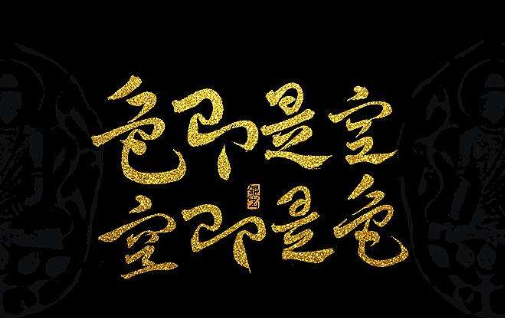 色即是空
空即是色